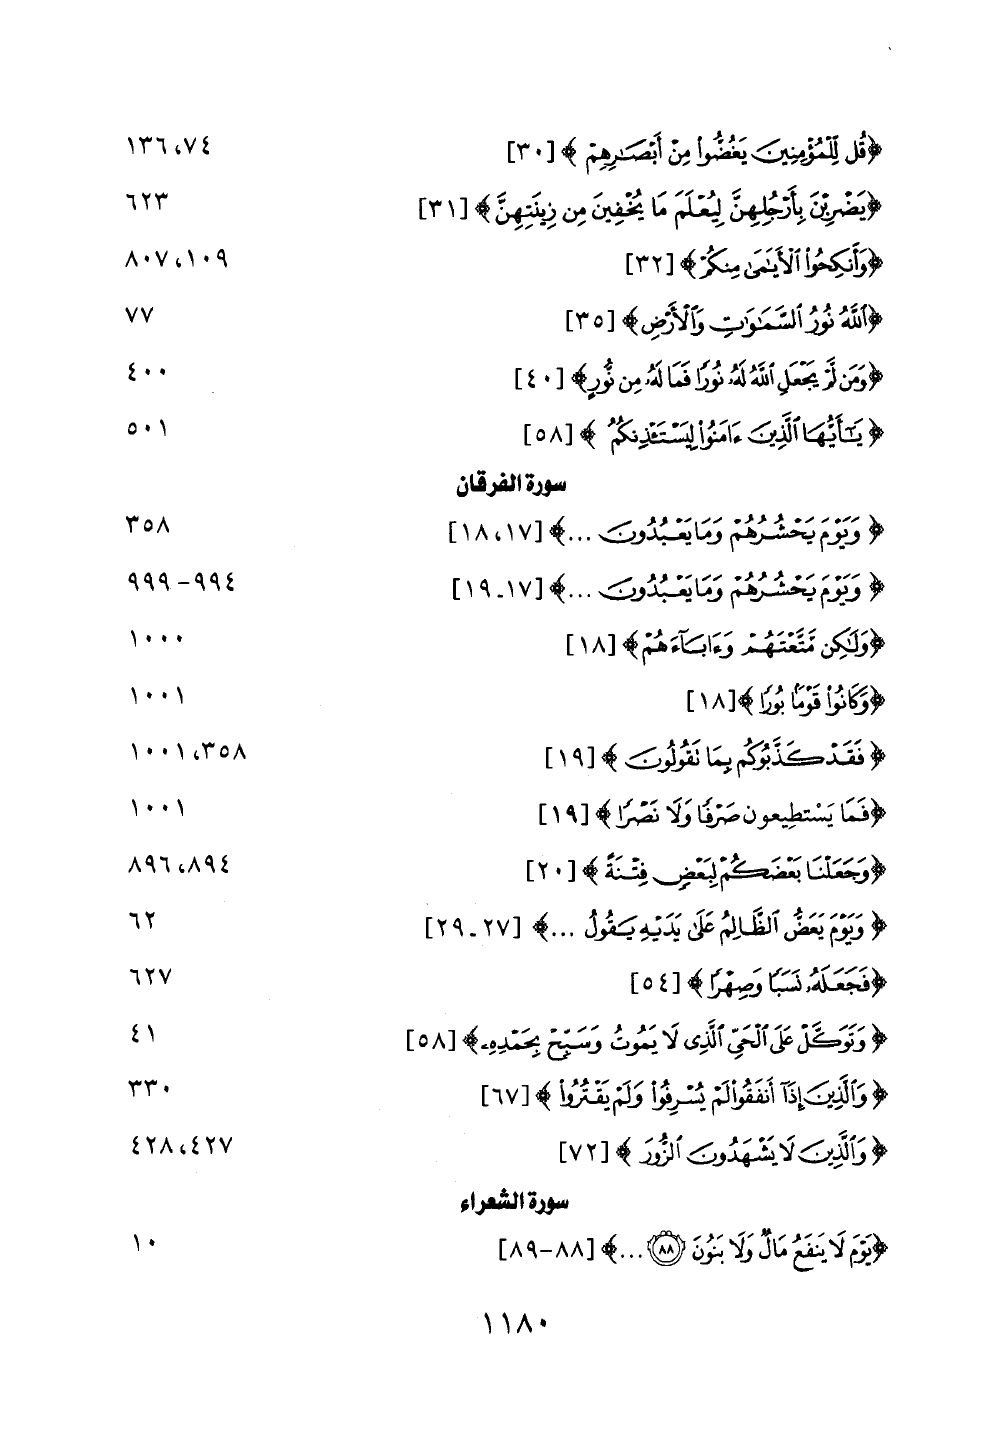 ﴿قُل لِّلْمُؤْمِنِينَ يَغُضُّوا۟ مِنْ أَبْصَـٰرِهِمْ﴾ [٣٠] ٧٤، ١٣٦
﴿يَضْرِبْنَ بِأَرْجُلِهِنَّ لِيُعْلَمَ مَا يُخْفِينَ مِن زِينَتِهِنَّ﴾ [٣١] ٦٢٣
﴿وَأَنكِحُوا۟ ٱلْأَيَـٰمَىٰ مِنكُمْ﴾ [٣٢] ١٠٩، ٨٠٧
﴿ٱللَّهُ نُورُ ٱلسَّمَـٰوَٰتِ وَٱلْأَرْضِ﴾ [٣٥] ٧٧
﴿وَمَن لَّمْ يَجْعَلِ ٱللَّهُ لَهُۥ نُورًا فَمَا لَهُۥ مِن نُّورٍ﴾ [٤٠] ٤٠٠
﴿يَـٰٓأَيُّهَا ٱلَّذِينَ ءَامَنُوا۟ لِيَسْتَـْٔذِنكُمُ﴾ [٥٨] ٥٠١
سورة الفرقان
﴿وَيَوْمَ يَحْشُرُهُمْ وَمَا يَعْبُدُونَ ...﴾ [١٧، ١٨] ٣٥٨
﴿وَيَوْمَ يَحْشُرُهُمْ وَمَا يَعْبُدُونَ ...﴾ [١٧ـ١٩] ٩٩٤-٩٩٩
﴿وَلَـٰكِن مَّتَّعْتَهُمْ وَءَابَآءَهُمْ﴾ [١٨] ١٠٠٠
﴿وَكَانُوا۟ قَوْمًۢا بُورًا﴾ [١٨] ١٠٠١
﴿فَقَدْ كَذَّبُوكُم بِمَا تَقُولُونَ﴾ [١٩] ٣٥٨، ١٠٠١
﴿فَمَا يَسْتَطِيعون صَرْفًا وَلَا نَصْرًا﴾ [١٩] ١٠٠١
﴿وَجَعَلْنَا بَعْضَكُمْ لِبَعْضٍ فِتْنَةً﴾ [٢٠] ٨٩٤، ٨٩٦
﴿وَيَوْمَ يَعَضُّ ٱلظَّالِمُ عَلَىٰ يَدَيْهِ يَقُولُ ...﴾ [٢٧ـ٢٩] ٦٢
﴿فَجَعَلَهُۥ نَسَبًا وَصِهْرًا﴾ [٥٤] ٦٢٧
﴿وَتَوَكَّلْ عَلَى ٱلْحَىِّ ٱلَّذِى لَا يَمُوتُ وَسَبِّحْ بِحَمْدِهِۦ﴾ [٥٨] ٤١
﴿وَٱلَّذِينَ إِذَآ أَنفَقُوا۟ لَمْ يُسْرِفُوا۟ وَلَمْ يَقْتُرُوا۟﴾ [٦٧] ٣٣٠
﴿وَٱلَّذِينَ لَا يَشْهَدُونَ ٱلزُّورَ﴾ [٧٢] ٤٢٧، ٤٢٨
سورة الشعراء
﴿يَوْمَ لَا يَنفَعُ مَالٌ وَلَا بَنُونَ ٨٨ ...﴾ [٨٨-٨٩] ١٠
١١٨٠